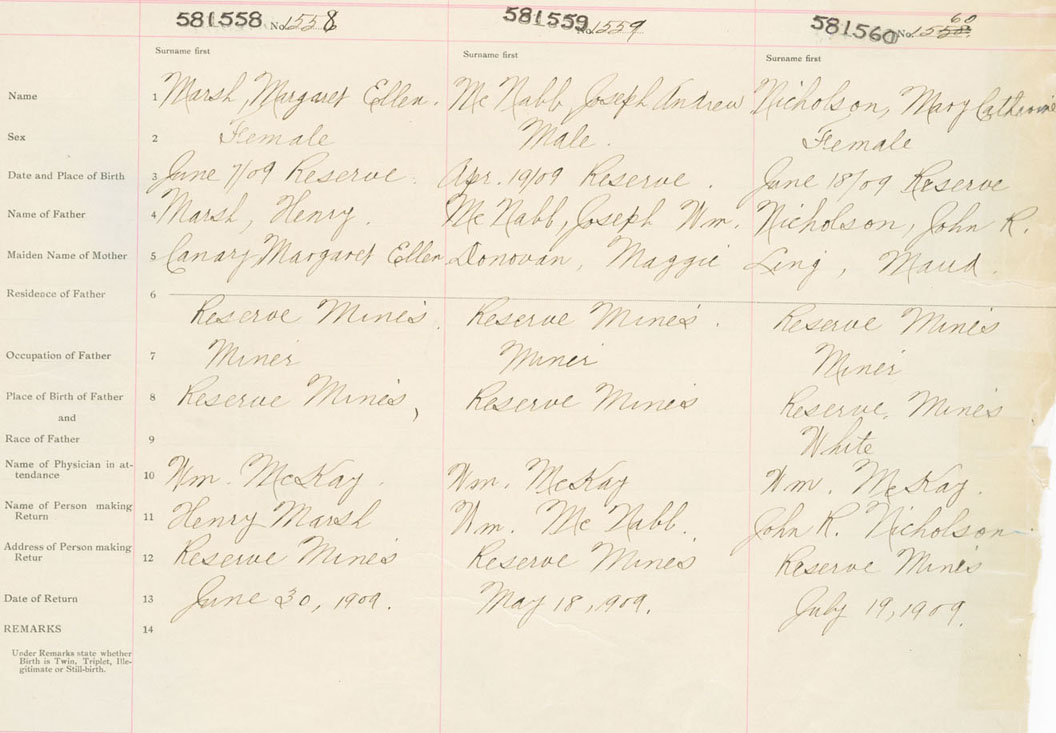 581558 No. 1558 581559 No. 1559 581560 No. 1558. 60
Surname first Surname first Surname first
Name 1 Marsh, Margaret Ellen. McNabb, Joseph Andrew Nicholson, Mary Catharine
Sex 2 Female Male. Female
Date and Place of Birth 3 June 7/09 Reserve. Apr. 19/09 Reserve. June 18/09 Reserve
Name of Father 4 Marsh, Henry. McNabb, Joseph Wm. Nicholson, John R.
Maiden Name of Mother 5 Canary Margaret Ellen Donovan, Maggie Ling, Maud.
Residence of Father 6
Reserve Mines. Reserve Mines. Reserve Mines
Occupation of Father 7 Miner Miner Miner
Place of Birth of Father 8 Reserve Mines, Reserve Mines Reserve, Mines
and
Race of Father 9 White
Name of Physician in at-
tendance 10 Wm. McKay. Wm. McKay Wm. McKay.
Name of Person making
Return 11 Henry Marsh Wm. McNabb. John R. Nicholson
Address of Person making
Retur 12 Reserve Mines Reserve Mines Reserve Mines
Date of Return 13 June 30, 1909. May 18, 1909. July 19, 1909.
REMARKS 14
Under Remarks state whether
Birth is Twin, Triplet, Ille-
gitimate or Still-birth.